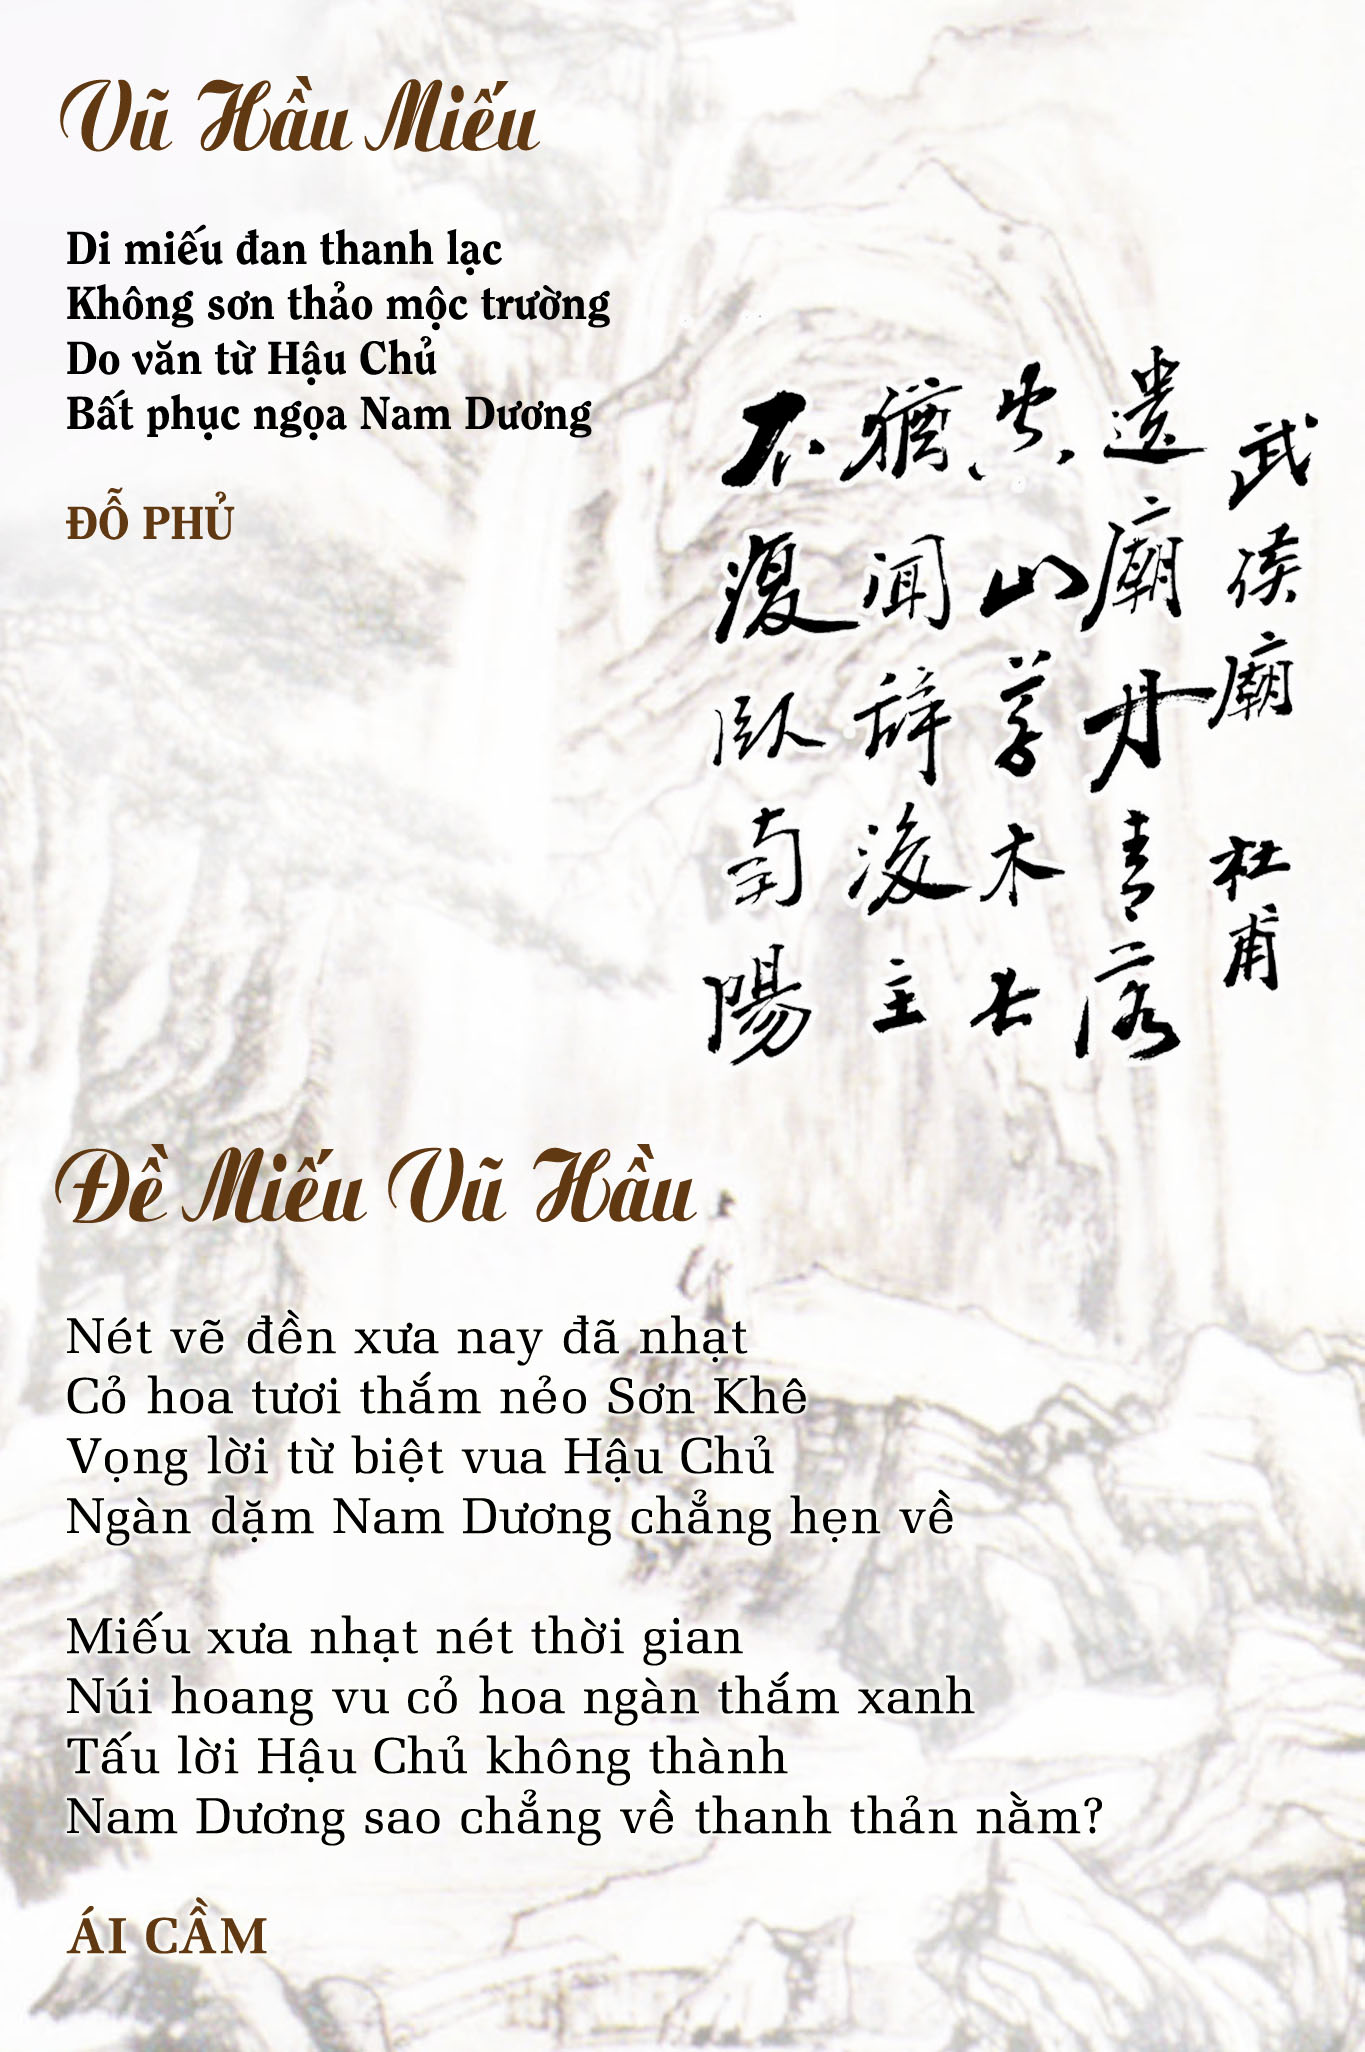 Vũ Hầu Miếu
Di miếu đan thanh lạc
Không sơn thảo mộc trường
Do văn từ Hậu Chủ
Bất phục ngọa Nam Dương
ĐỖ PHỦ
武侯廟 杜甫
遺廟丹青落
空山草木長
猶聞辭後主
不復臥南陽
Đề Miếu Vũ Hầu
Nét vẽ đền xưa nay đã nhạt
Cỏ hoa tươi thắm nẻo Sơn Khê
Vọng lời từ biệt vua Hậu Chủ
Ngàn dặm Nam Dương chẳng hẹn về
Miếu xưa nhạt nét thời gian
Núi hoang vu cỏ hoa ngàn thắm xanh
Tấu lời Hậu Chủ không thành
Nam Dương sao chẳng về thanh thản nằm?
ÁI CẦM